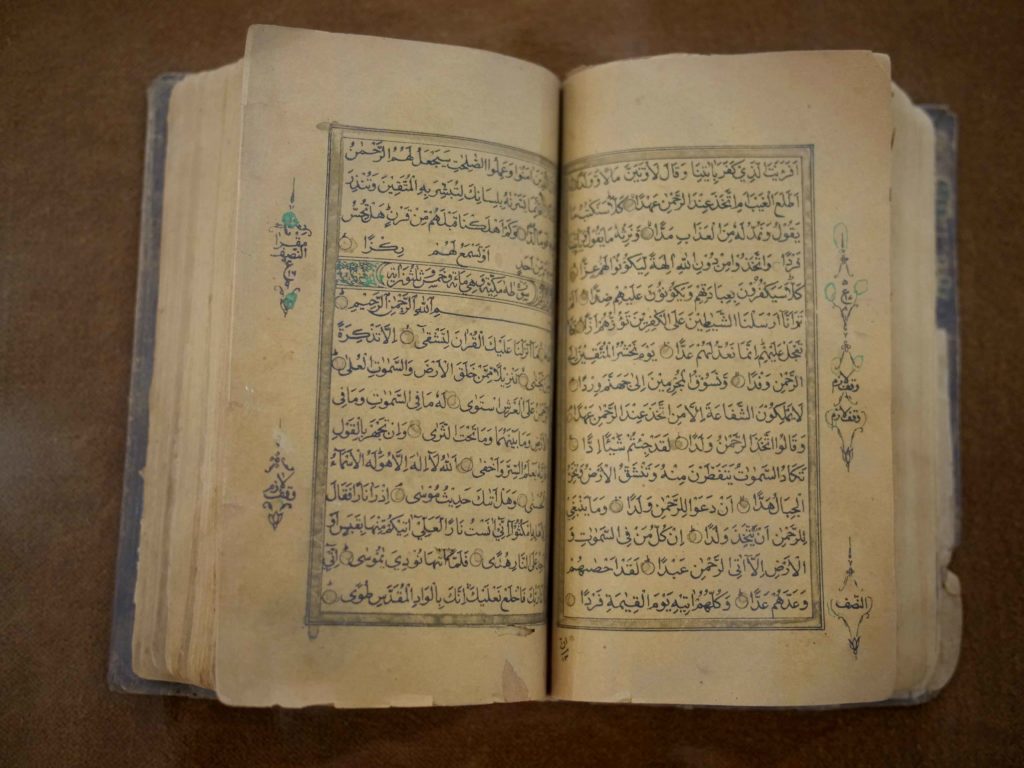 اَفَرَءَيْتَ الَّذِي كَفَرَ بِاٰيٰتِنَا وَقَالَ لَاُوتَيَنَّ مَالًا وَوَلَدًا
اَطَّلَعَ الْغَيْبَ اَمِ اتَّخَذَ عِنْدَ الرَّحْمٰنِ عَهْدًا كَلَّا سَنَكْتُبُ مَا
يَقُولُ وَنَمُدُّ لَهُ مِنَ الْعَذَابِ مَدًّا وَنَرِثُهُ مَا يَقُولُ
فَرْدًا وَاتَّخَذُوا مِنْ دُونِ اللّٰهِ اٰلِهَةً لِيَكُونُوا لَهُمْ عِزًّا
كَلَّا سَيَكْفُرُونَ بِعِبَادَتِهِمْ وَيَكُونُونَ عَلَيْهِمْ ضِدًّا
تَرَ اَنَّا اَرْسَلْنَا الشَّيٰطِينَ عَلَى الْكٰفِرِينَ تَؤُزُّهُمْ اَزًّا فَلَا
تَعْجَلْ عَلَيْهِمْ اِنَّمَا نَعُدُّ لَهُمْ عَدًّا يَوْمَ نَحْشُرُ الْمُتَّقِينَ
الرَّحْمٰنِ وَفْدًا وَنَسُوقُ الْمُجْرِمِينَ اِلٰى جَهَنَّمَ وِرْدًا
لَا يَمْلِكُونَ الشَّفَاعَةَ اِلَّا مَنِ اتَّخَذَ عِنْدَ الرَّحْمٰنِ عَهْدًا
وَقَالُوا اتَّخَذَ الرَّحْمٰنُ وَلَدًا لَقَدْ جِئْتُمْ شَيْئًا اِدًّا
تَكَادُ السَّمٰوٰتُ يَتَفَطَّرْنَ مِنْهُ وَتَنْشَقُّ الْاَرْضُ وَتَخِرُّ
الْجِبَالُ هَدًّا اَنْ دَعَوْا لِلرَّحْمٰنِ وَلَدًا وَمَا يَنْبَغِي
لِلرَّحْمٰنِ اَنْ يَتَّخِذَ وَلَدًا اِنْ كُلُّ مَنْ فِي السَّمٰوٰتِ وَ
الْاَرْضِ اِلَّا اٰتِي الرَّحْمٰنِ عَبْدًا لَقَدْ اَحْصٰيهُمْ
وَعَدَّهُمْ عَدًّا وَكُلُّهُمْ اٰتِيهِ يَوْمَ الْقِيٰمَةِ فَرْدًا
النصف
اٰمَنُوا وَعَمِلُوا الصّٰلِحٰتِ سَيَجْعَلُ لَهُمُ الرَّحْمٰنُ
يَسَّرْنٰهُ بِلِسَانِكَ لِتُبَشِّرَ بِهِ الْمُتَّقِينَ وَتُنْذِرَ
لُدًّا وَكَمْ اَهْلَكْنَا قَبْلَهُمْ مِنْ قَرْنٍ هَلْ تُحِسُّ
مِنْ اَحَدٍ اَوْ تَسْمَعُ لَهُمْ رِكْزًا
سورة طه مكية وهي مائة وخمس وثلثون اية
بِسْمِ اللّٰهِ الرَّحْمٰنِ الرَّحِيمِ
مَا اَنْزَلْنَا عَلَيْكَ الْقُرْاٰنَ لِتَشْقٰى اِلَّا تَذْكِرَةً
يَخْشٰى تَنْزِيلًا مِمَّنْ خَلَقَ الْاَرْضَ وَالسَّمٰوٰتِ الْعُلٰى
عَلَى الْعَرْشِ اسْتَوٰى لَهُ مَا فِي السَّمٰوٰتِ وَمَا فِي
وَمَا بَيْنَهُمَا وَمَا تَحْتَ الثَّرٰى وَاِنْ تَجْهَرْ بِالْقَوْلِ
يَعْلَمُ السِّرَّ وَاَخْفٰى اَللّٰهُ لَا اِلٰهَ اِلَّا هُوَ لَهُ الْاَسْمَاءُ
الْحُسْنٰى وَهَلْ اَتٰيكَ حَدِيثُ مُوسٰى اِذْ رَاٰ نَارًا فَقَالَ
امْكُثُوا اِنِّي اٰنَسْتُ نَارًا لَعَلِّي اٰتِيكُمْ مِنْهَا بِقَبَسٍ اَوْ
عَلَى النَّارِ هُدًى فَلَمَّا اَتٰيهَا نُودِيَ يٰمُوسٰى اِنِّي
رَبُّكَ فَاخْلَعْ نَعْلَيْكَ اِنَّكَ بِالْوَادِ الْمُقَدَّسِ طُوًى